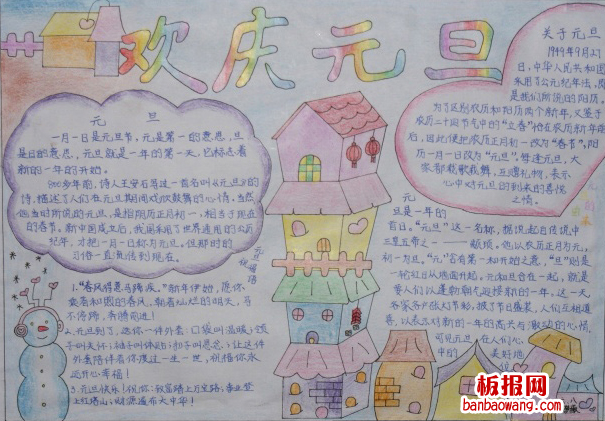 欢庆元旦
元 旦
一月一日是元旦节,元是第一的意思,旦
是日的意思,元旦就是一年的第一天,它标志着
新的一年的开始。
800多年前,诗人王安石写过一首名叫《元旦》的
诗,描述了人们在元旦期间欢欣鼓舞的心情。当然
他当时所说的元旦,是指阴历正月初一,相当于现在
的春节。新中国成立后,我国采用了世界通用的公历
纪年,才把一月一日称为元旦。但那时的
习俗一直流传到现在。
元旦祝福语
1."春风得意马蹄疾。"新年伊始,愿你
乘着和煦的春风,朝着灿烂的明天,马
不停蹄,奔腾前进!
2.元旦到了,送你一件外套:口袋叫温暖;领
子叫关怀;袖子叫体贴;扣子叫思念;让这件
外套陪伴着你度过一生一世,祝福你永
远开心幸福!
3.元旦快乐!祝你:致富踏上万宝路;事业登
上红塔山;财源遍布大中华!
关于元旦
1949年9月27
日,中华人民共和国
采用了公元纪年法,
是我们所说的阳历,
为了区别农历和阳历两个新年,又鉴于
农历二十四节气中的"立春"恰在农历新年
后,因此便把农历正月初一改为"春节",阳
历一月一日改为"元旦"。每逢元旦,大
家都载歌载舞,互赠礼物,表示
心中对元旦的到来的喜悦
之情。
元
旦是一年的
首日。"元旦"这一名称,据说起自传说中
三皇五帝之一——颛顼。他以农历正月为元,
初一为旦。"元"含有第一和开始之意,"旦"则是
一轮红日从地面升起。元和旦合在一起,就是
要人们以蓬勃朝气迎接新的一年。这一天
家家户户张灯节彩,披了节日盛装,人们互相道
喜,以表示对新的一年的高兴与激动的心情。
可见元旦 在人们心
中的 美好地
板报网
banbaowang.com